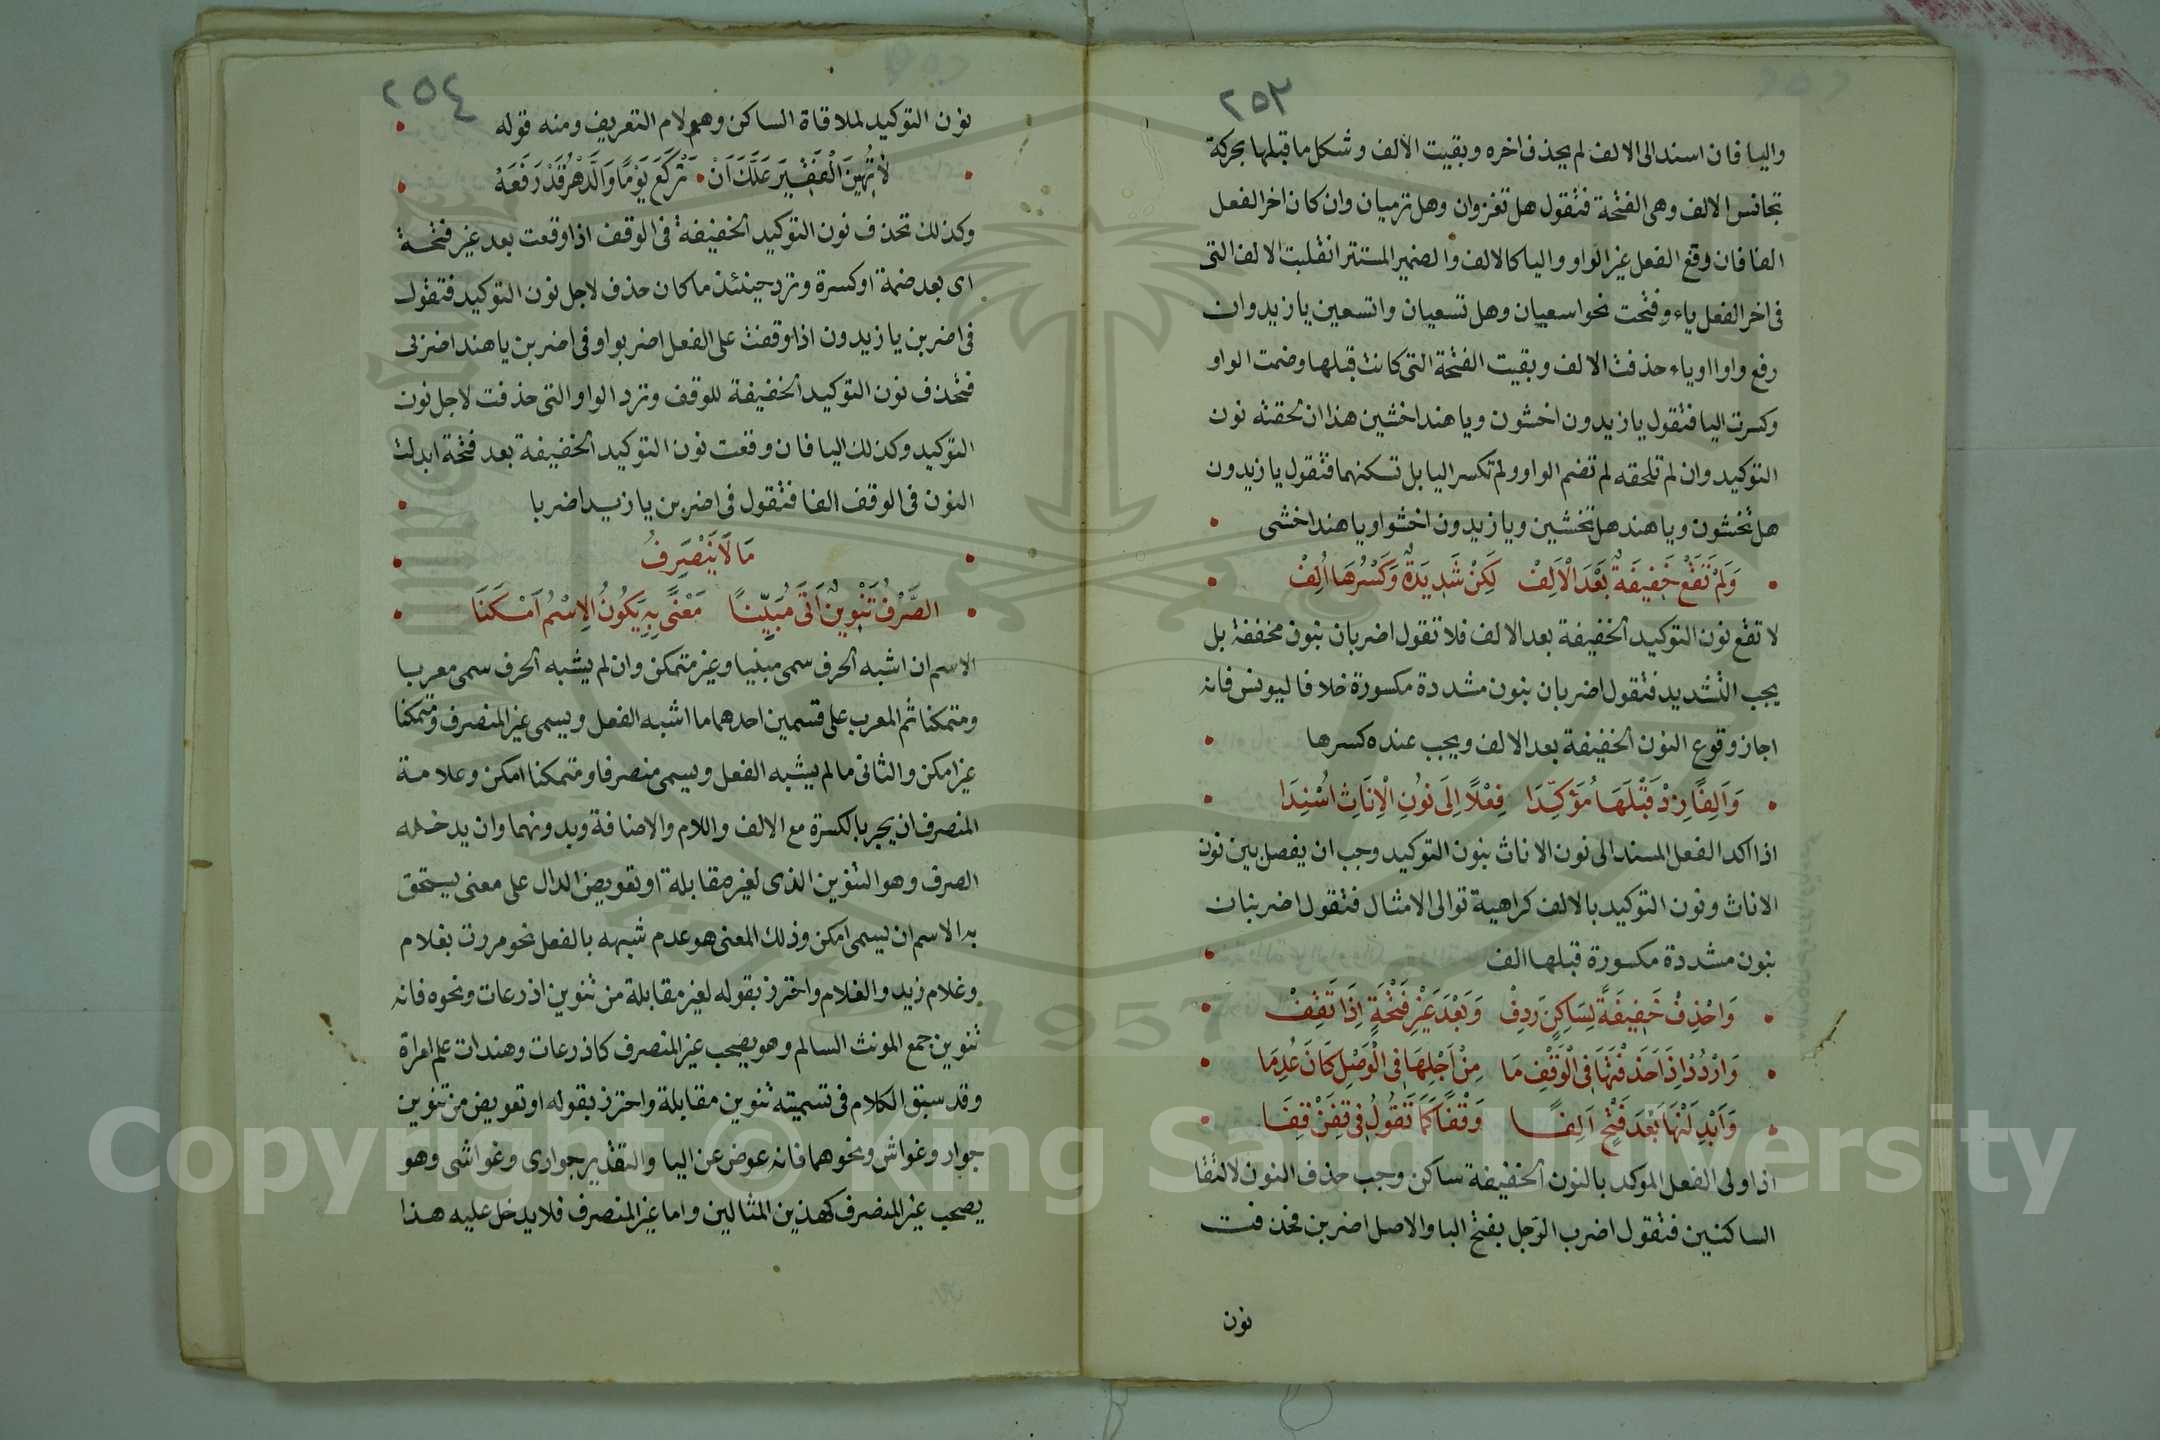 ٢٥٣
واليا فان اسند الى الالف لم يحذف اخره وبقيت الالف وشكل ما قبلها بحركة
تجانس الالف وهى الفتحة فتقول هل تغزوان وهل ترميان وان كان اخر الفعل
الفا فان رفع الفعل غير الواو واليا كالالف والضمير المستتر انقلبت الالف التى
فى اخر الفعل ياء وفتحت نحو اسعيان وهل تسعيان واتسعين يا زيد وان
رفع واوا او ياء حذفت الالف وبقيت الفتحة التى كانت قبلها وضمت الواو
وكسرت اليا فتقول يا زيدون اخشون ويا هند اخشين هذا ان لحقته نون
التوكيد وان لم تلحقه لم تضم الواو ولم تكسر اليا بل تسكنهما فتقول يا زيدون
هل تخشون ويا هند هل تخشين ويا زيدون اخشوا ويا هند اخشى
وَلَمْ تَقَعْ خَفِيفَةٌ بَعْدَ الْاَلِفْ لَكِنْ شَدِيدَةٌ وَكَسْرُهَا اُلِفْ
لا تقع نون التوكيد الخفيفة بعد الالف فلا تقول اضربان بنون مخففة بل
يجب التشديد فتقول اضربان بنون مشددة مكسورة خلافا ليونس فانه
اجاز وقوع النون الخفيفة بعد الالف ويجب عنده كسرها
وَاَلِفًا زِدْ قَبْلَهَا مُؤَكِّدَا فِعْلًا اِلَى نُونِ الْاِنَاثِ اُسْنِدَا
اذا اكد الفعل المسند الى نون الاناث بنون التوكيد وجب ان يفصل بين نون
الاناث ونون التوكيد بالالف كراهية توالى الامثال فتقول اضربنان
بنون مشددة مكسورة قبلها الف
وَاحْذِفْ خَفِيفَةً لِسَاكِنٍ رَدِفْ وَبَعْدَ غَيْرِ فَتْحَةٍ اِذَا تَقِفْ
وَارْدُدْ اِذَا حَذَفْتَهَا فِى الْوَقْفِ مَا مِنْ اَجْلِهَا فِى الْوَصْلِ كَانَ عُدِمَا
وَاَبْدِلَنْهَا بَعْدَ فَتْحٍ اَلِفًا وَقْفًا كَمَا تَقُولُ فِى قِفَنْ قِفَا
اذا ولى الفعل الموكد بالنون الخفيفة ساكن وجب حذف النون لالتقا
الساكنين فتقول اضرب الرجل بفتح البا والاصل اضربن فحذفت
نون
٢٥٤
نون التوكيد لملاقاة الساكن وهو لام التعريف ومنه قوله
لَا تُهِينَ الْفَقِيرَ عَلَّكَ اَنْ تَرْكَعَ يَوْمًا وَالَّدهْرُ قَدْ رَفَعَهْ
وكذلك تحذف نون التوكيد الخفيفة فى الوقف اذا وقعت بعد غير فتحة
اى بعد ضمة او كسرة وترد حينئذ ما كان حذف لاجل نون التوكيد فتقول
فى اضربن يا زيدون اذا وقفت على الفعل اضربوا وفى اضربن يا هند اضربى
فتحذف نون التوكيد الخفيفة للوقف وترد الواو التى حذفت لاجل نون
التوكيد وكذلك اليا فان وقعت نون التوكيد الخفيفة بعد فتحة ابدلت
النون فى الوقف الفا فتقول فى اضربن يا زيد اضربا
مَا لَا يَنْصَرِفُ
الصَّرْفُ تَنْوِينٌ اَتَى مُبَيِّنًا مَعْنًى بِهِ يَكُونُ الِاسْمُ اَمْكَنَا
الاسم ان اشبه الحرف سمى مبنيا وغير متمكن وان لم يشبه الحرف سمى معربا
ومتمكنا ثم المعرب على قسمين احدهما ما اشبه الفعل ويسمى غير المنصرف ومتمكنا
غير امكن والثانى ما لم يشبه الفعل ويسمى منصرفا ومتمكنا امكن وعلامة
المنصرف ان يجر بالكسرة مع الالف واللام والاضافة وبدونهما وان يدخله
الصرف وهو التنوين الذى لغير مقابلة او تعويض الدال على معنى يستحق
به الاسم ان يسمى امكن وذلك المعنى هو عدم شبهه بالفعل نحو مررت بغلام
وغلام زيد والغلام واحترز بقوله لغير مقابلة من تنوين اذرعات ونحوه فانه
تنوين جمع المونث السالم وهو يصحب غير المنصرف كاذرعات وهندات علم امراة
وقد سبق الكلام فى تسميته تنوين مقابلة واحترز بقوله او تعويض من تنوين
جوار وغواش ونحوهما فانه عوض عن اليا والتقدير جوارى وغواشى وهو
يصحب غير المنصرف كهذين المثالين واما غير المنصرف فلا يدخل عليه هذا
Copyright © King Saud University
1957